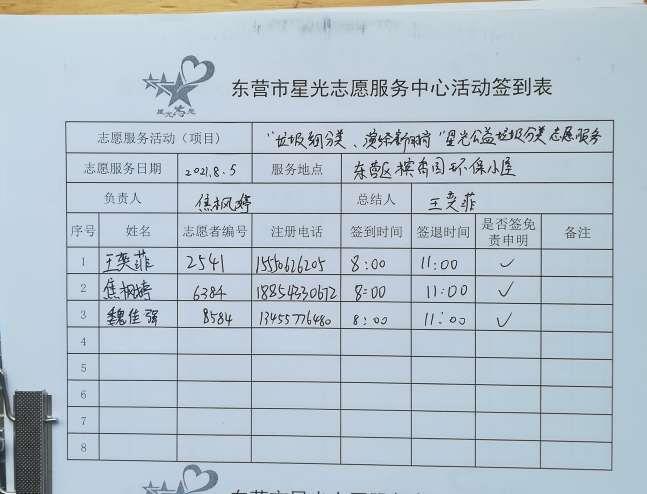 星光志愿
东营市星光志愿服务中心活动签到表
志愿服务活动（项目） "垃圾细分类、演绎新时尚"星光公益垃圾分类志愿服务
志愿服务日期 2021.8.5 服务地点 东营区槟香园环保小屋
负责人 焦枫婷 总结人 王奕菲
序号 姓名 志愿者编号 注册电话 签到时间 签退时间 是否签免责申明 备注
1 王奕菲 2541 15550626205 8:00 11:00 ✓
2 焦枫婷 6384 18854330672 8:00 11:00 ✓
3 魏佳强 8584 13455776480 8:00 11:00 ✓
4
5
6
7
8